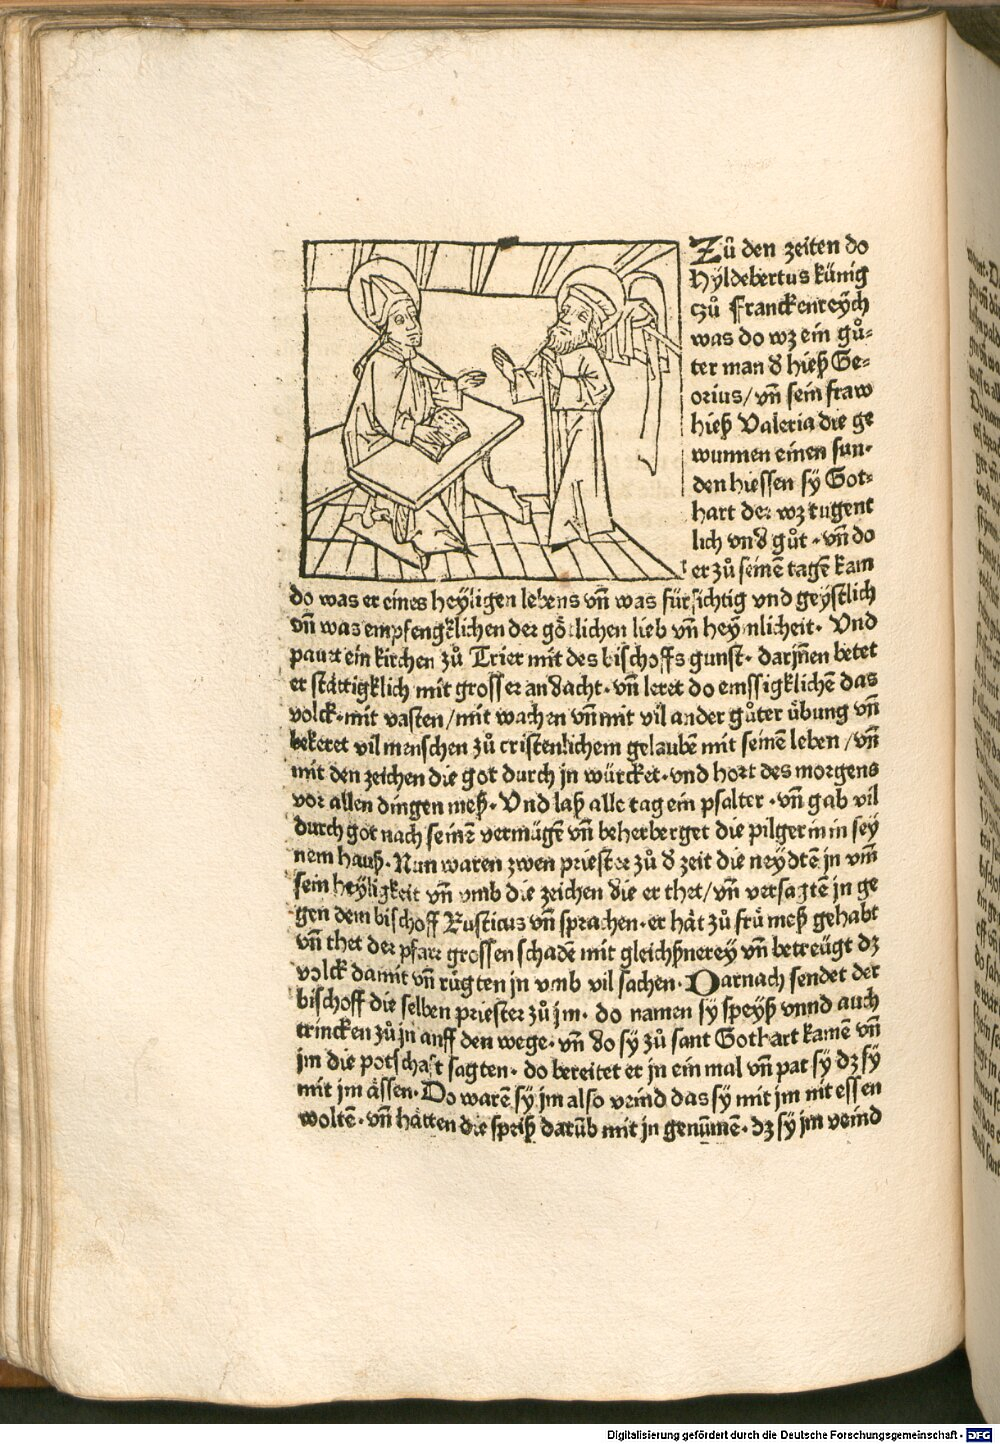 Zů den zeiten do
Hyldebertus künig
czů Franckenreych
was do wz ein gů-
ter man d̕ hieß Ge-
orius/ vn̄ sein fraw
hieß Valeria die ge
wunnen einen sun·
den hiessen sÿ Got-
hart der wz tugent
lich vnd̕ gůt · vn̄ do
er zů seinē tagē kam
do was er eines heyligen lebens vn̄ was fürsichtig vnd geystlich
vn̄ was empfengklichen der götlichen lieb vn̄ heymlichkeit· Vnd
pauet ein kirchen zů Trier mit des bischoffs gunst· dariñen betet
er stättigklich mit grosser andacht· vn̄ leret do emssigklichē das
volck·mit vasten/mit wachen vn̄ mit vil ander gůter übung vn̄
bekeret vil menschen zů cristenlichem gelaubē mit seinē leben /vn̄
mit den zeichen die got durch jn würcket·vnd hort des morgens
vor allen dingen meß· Vnd laß alle tag ein psalter · vn̄ gab vil
durch got nach seinē vermügē vn̄ beherberget die pilgerin in sey
nem hauß· Nun waren zwen priester zů d̕ zeit die neydtē jn vm̄
sein heyligkeit vn̄ vmb die zeichen die er thet/ vn̄ versagtē jn ge
gen dem bischoff Rusticus vn̄ sprachen· er hät zů frü meß gehabt
vn̄ thet der pfarr grossen schadē mit gleichßnerey vn̄ betreügt dz
volck damit vn̄ rügten jn vmb vil sachen· Darnach sendet der
bischoff die selben priester zů jm· do namen sÿ speyß vnnd auch
trincken zů jn auff den wege· vn̄ do sÿ zů sant Gothart kamē vn̄
jm die potschaft sagten· do bereitet er jn ein mal vn̄ pat sÿ dz sÿ
mit jm ässen· Do warē sÿ jm also veind das sÿ mit jm nit essen
woltē· vn̄ hätten die speiß darūb mit jn genūmē· dz sÿ jm veind
Digitalisierung gefördert durch die Deutsche Forschungsgemeinschaft - DFG